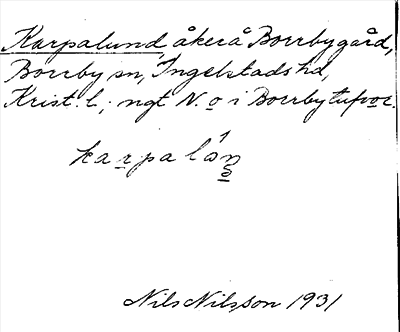 Karpalund, åker å Borrbygård,
Borrby sn, Ingelstads hd,
Krist. l.; ngt N. o i Borrby
karpa
Nils Nilsson 1931